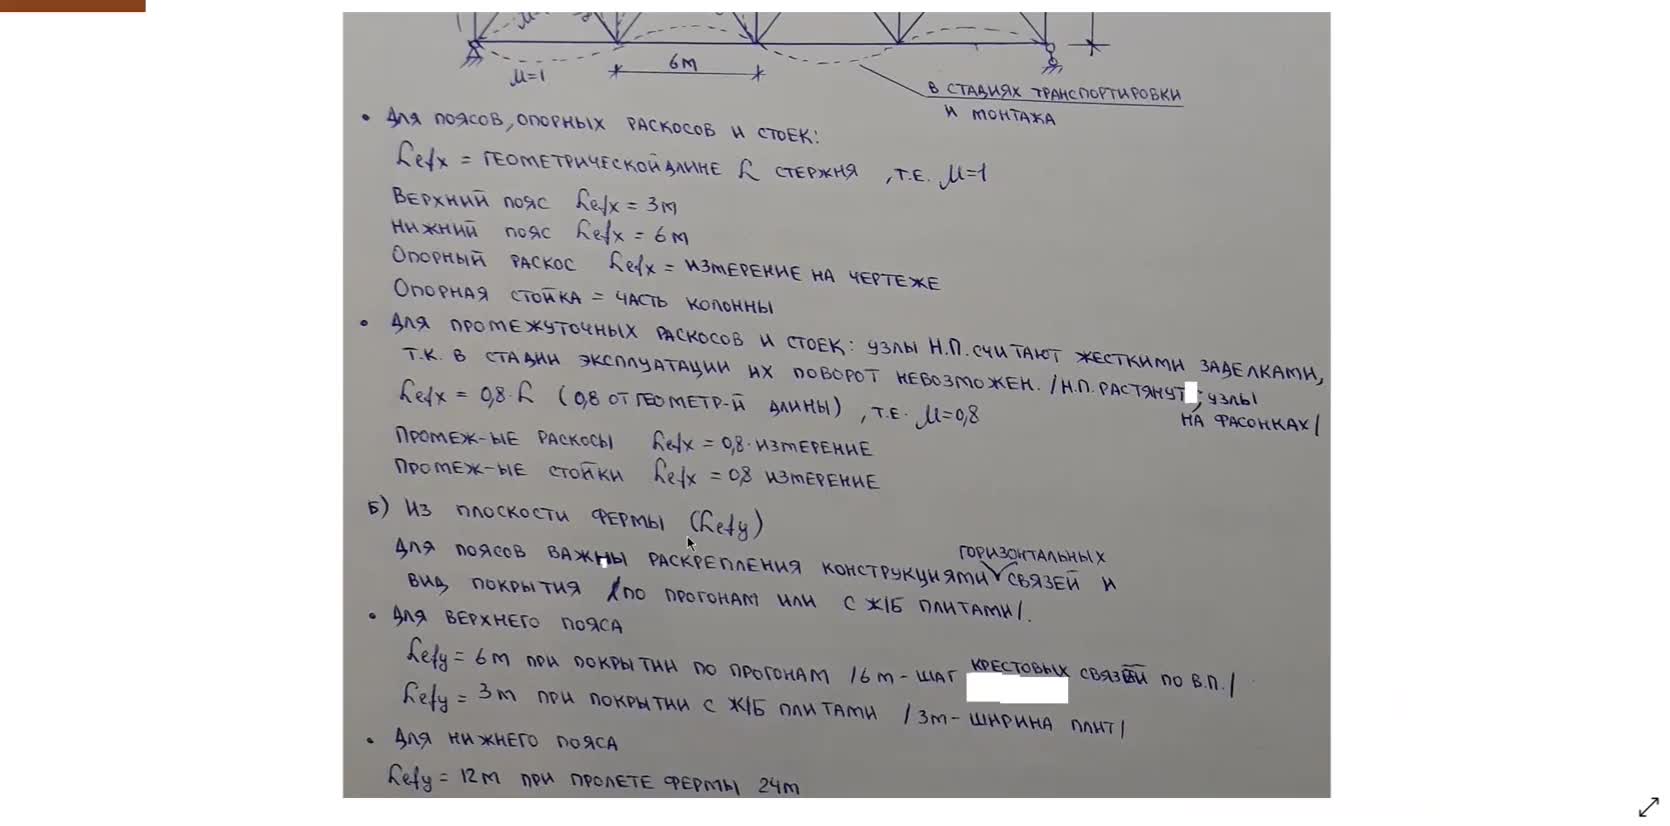 μ=1
6м
в стадиях транспортировки
и монтажа
• Для поясов, опорных раскосов и стоек:
Lefx = геометрической длине L стержня, т.е. μ=1
Верхний пояс Lefx = 3м
Нижний пояс Lefx = 6м
Опорный раскос Lefx = измерение на чертеже
Опорная стойка = часть колонны
• Для промежуточных раскосов и стоек: узлы Н.П. считают жесткими заделками,
т.к. в стадии эксплуатации их поворот невозможен. /Н.П. растянут, узлы
на фасонках/
Lefx = 0,8·L (0,8 от геометр-й длины), т.е. μ=0,8
Промеж-ые раскосы Lefx = 0,8·измерение
Промеж-ые стойки Lefx = 0,8 измерение
Б) Из плоскости фермы (Lefy)
Для поясов важны раскрепления конструкциями горизонтальных связей и
вид покрытия /по прогонам или с ж/б плитами/.
• Для верхнего пояса
Lefy = 6м при покрытии по прогонам /6м - шаг крестовых связей по В.П./
Lefy = 3м при покрытии с ж/б плитами /3м - ширина плит/
• Для нижнего пояса
Lefy = 12м при пролете фермы 24м